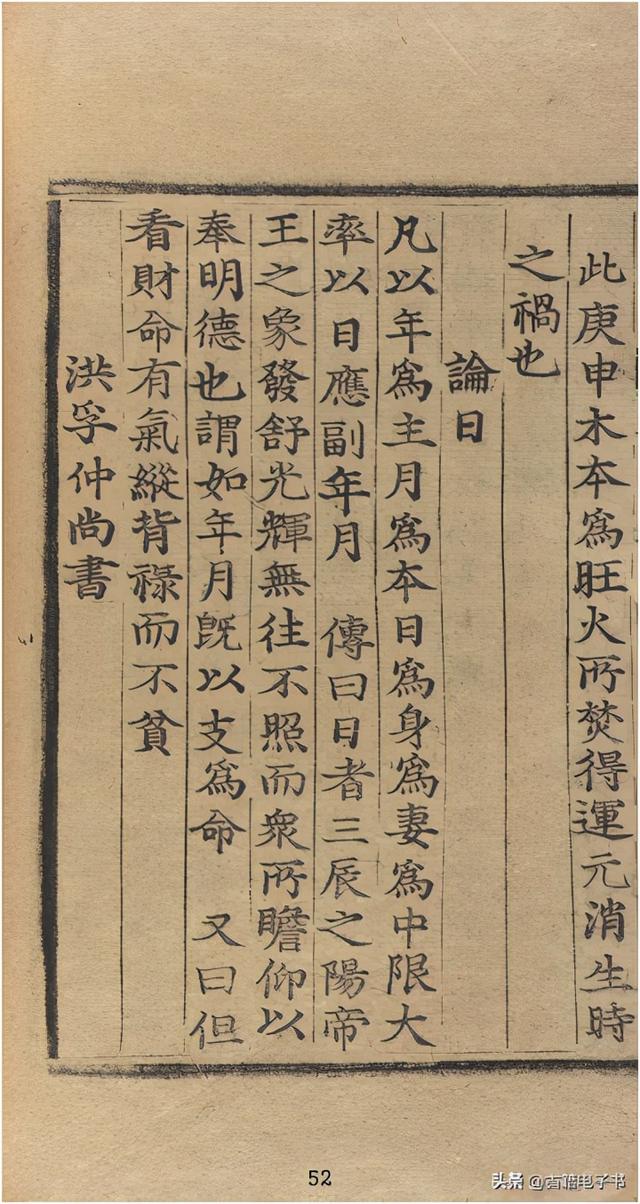 此庚申木本為旺火所焚得運元消生時
之禍也
論日
凡以年為主月為本日為身為妻為中限大
率以日應副年月 傳曰日者三辰之陽帝
王之象發舒光輝無往不照而衆所瞻仰以
奉明德也謂如年月旣以支為命 又曰但
看財命有氣縱背祿而不貧
洪孚仲尚書
52
头条 @古籍电子书